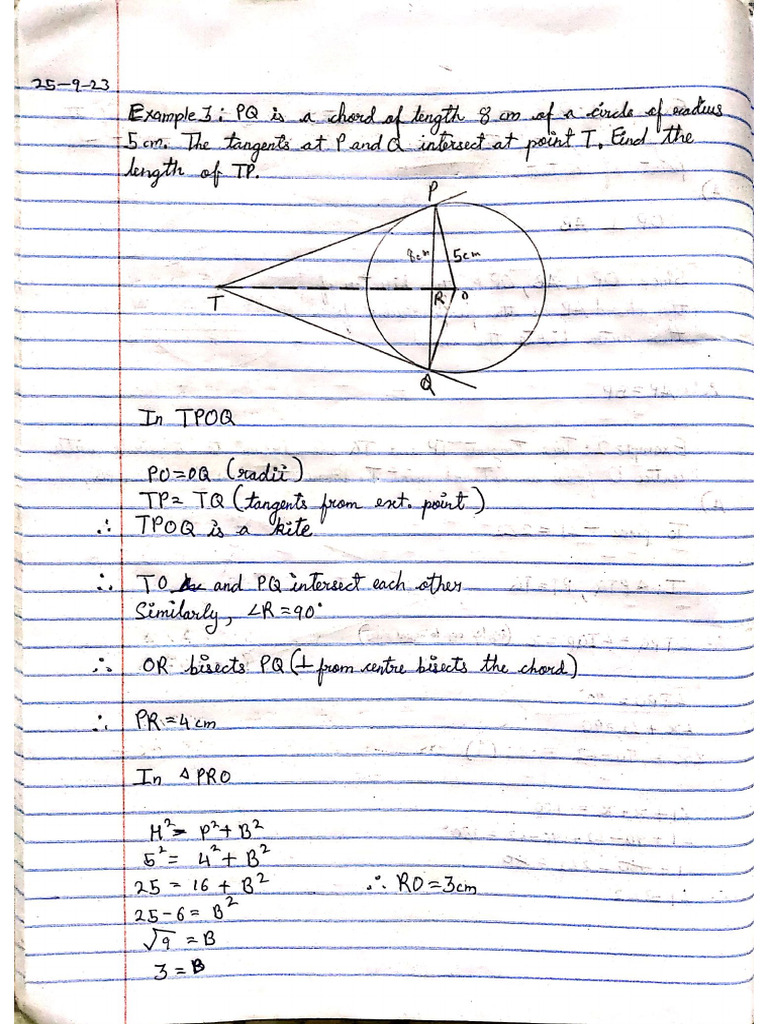 25-9-23
Example 3: PQ is a chord of length 8 cm of a circle of radius
5 cm. The tangents at P and Q intersect at point T. Find the
length of TP.
P
8cm 5cm
T R O
Q
In TPOQ
PO=OQ (radii)
TP= TQ (tangents from ext. point)
∴ TPOQ is a kite
∴ TO and PQ intersect each other
Similarly, ∠R=90°
∴ OR bisects PQ (⊥ from centre bisects the chord)
∴ PR=4cm
In △PRO
H²= P²+B²
5²= 4²+B²
25 = 16 + B² ∴ RO=3cm
25-6= B²
√9 = B
3 = B